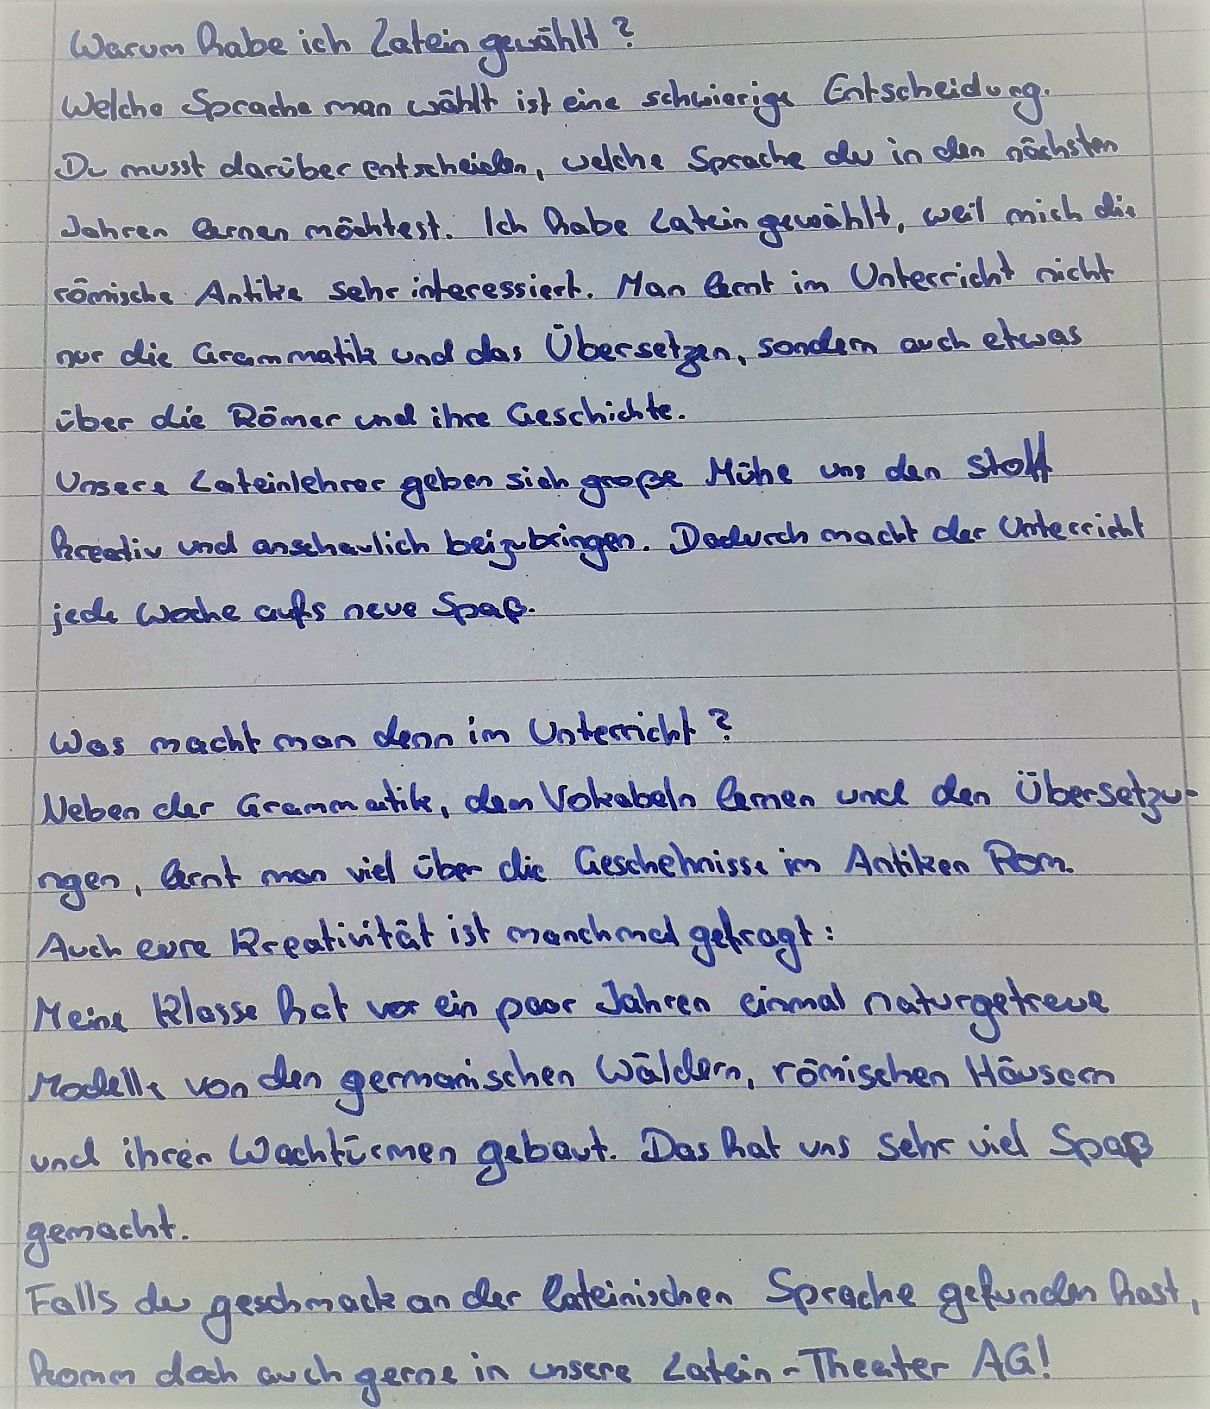 Warum habe ich Latein gewählt?
Welche Sprache man wählt ist eine schwierige Entscheidung.
Du musst darüber entscheiden, welche Sprache du in den nächsten
Jahren lernen möchtest. Ich habe Latein gewählt, weil mich die
römische Antike sehr interessiert. Man lernt im Unterricht nicht
nur die Grammatik und das Übersetzen, sondern auch etwas
über die Römer und ihre Geschichte.
Unsere Lateinlehrer geben sich große Mühe uns den Stoff
kreativ und anschaulich beizubringen. Dadurch macht der Unterricht
jede Woche aufs neue Spaß.
Was macht man denn im Unterricht?
Neben der Grammatik, dem Vokabeln lernen und den Übersetzu-
ngen, lernt man viel über die Geschehnisse im Antiken Rom.
Auch eure Kreativität ist manchmal gefragt:
Meine Klasse hat vor ein paar Jahren einmal naturgetreue
Modelle von den germanischen Wäldern, römischen Häusern
und ihren Wachtürmen gebaut. Das hat uns sehr viel Spaß
gemacht.
Falls du geschmack an der lateinischen Sprache gefunden hast,
komm doch auch gerne in unsere Latein-Theater AG!